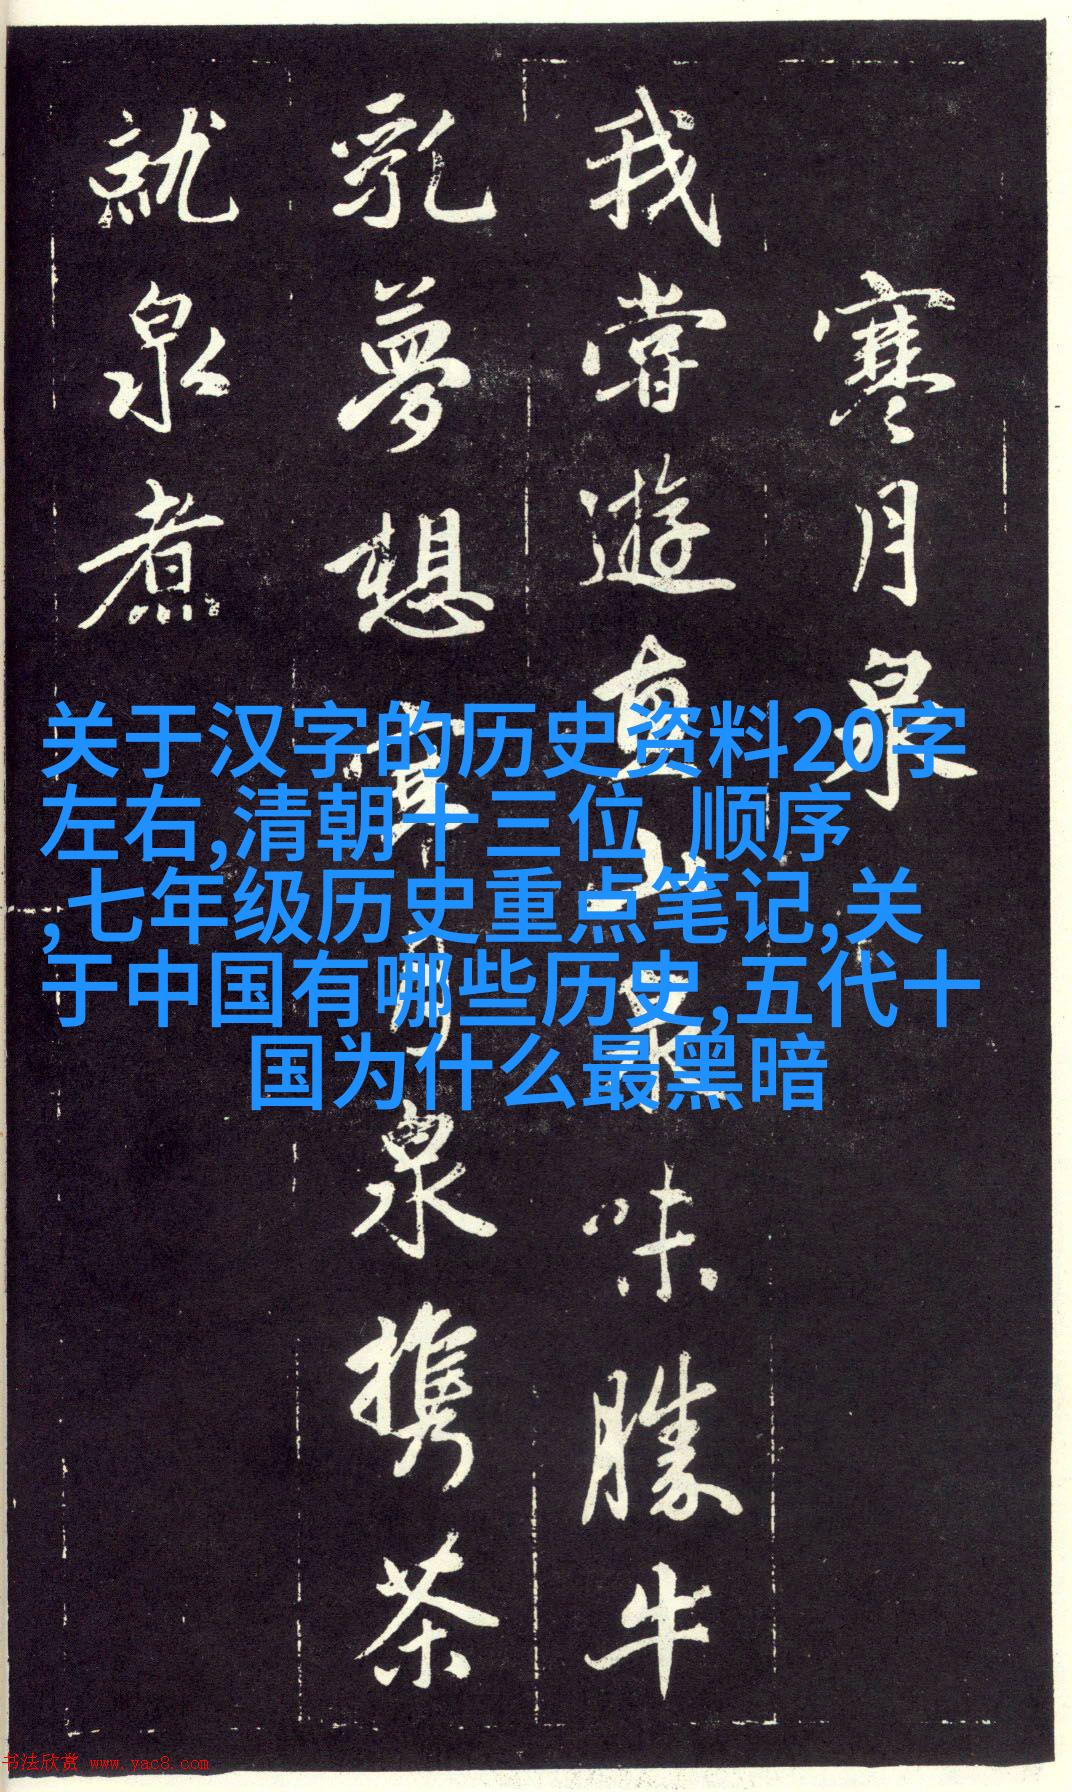 寒月泉
我嘗遊
味勝牛
乳夢想
泉携茶
就泉煮
关于汉字的历史资料20字
左右,清朝十三位 顺序
,七年级历史重点笔记,关
于中国有哪些历史,五代十
国为什么最黑暗
书法欣赏 www.yac8.com